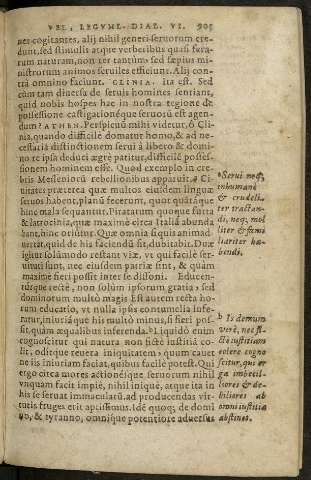 VEL, LEGVML. DIAL. VI. 905
nec cogitantes, alij nihil generi seruorum cre-
dunt, sed stimulis atque verberibus quasi fera-
rum naturam, non ter tantùm, sed sæpius mi-
nistrorum animos seruiles efficiunt. Alij con-
trà omnino faciunt. CLINIA. Ita est. Sed
cùm tam diuersa de seruis homines sentiant,
quid nobis hospes hac in nostra regione de
possessione castigationéque seruorū est agen-
dum? ATHEN. Perspicuū mihi videtur, ô Cli-
nia, quandò difficilè domatur homo, & ad ne-
cessariā distinctionem serui à libero & domi-
no re ipsa deduci ægrè patitur, difficilē posses-
sionem hominem esse. Quod exemplo in cre-
bris Messeniorū rebellionibus apparuit. a Ci-
uitates præterea quæ multos eiusdem linguæ
seruos habent, planū fecerunt, quot quātáque
hinc mala sequantur. Piratatum quoque furta
& latrocinia, quæ maximè circa Italiā abunda
bant, hinc oriuntur. Quæ omnia si quis animad
uertat, quid de his faciendū sit, dubitabit. Duæ
igitur solùmodo restant viæ, vt qui facilè ser-
uituri sunt, nec eiusdem patriæ sint, & quàm
maximè fieri possit inter se dissoni. Educen-
túrque rectè, non solùm ipsorum gratia, sed
dominorum multò magis Est autem recta ho-
rum educatio, vt nulla ipsis contumelia infe-
ratur, iniuriáque his multò minùs, si fieri pos-
sit, quàm æqualibus inferenda. b Liquidò enim
cognoscitur qui natura non fictè institiā co-
lit, oditque reuera iniquitatem, quum cauet
ne iis iniuriam faciat, quibus facilè potest. Qui
ergo circa mores actionésque seruorum nihil
vnquam facit impiè, nihil iniquè, atque ita in
his se seruat immaculatū, ad producendas vir-
tutis fruges erit aptissimus. Idē quoq; de domi
no, & tyranno, omnisque potentiore aduersus
a Serui neq;
inhumanè
& crudeli-
ter tractan-
di, neq; mol
liter & fami
liariter ha-
bendi.
b Is demum
verè, nec fi-
ctè iustitiam
colere cogno
scitur, qui er
ga imbecil-
liores & de-
biliores ab
omni iustitia
abstinet.